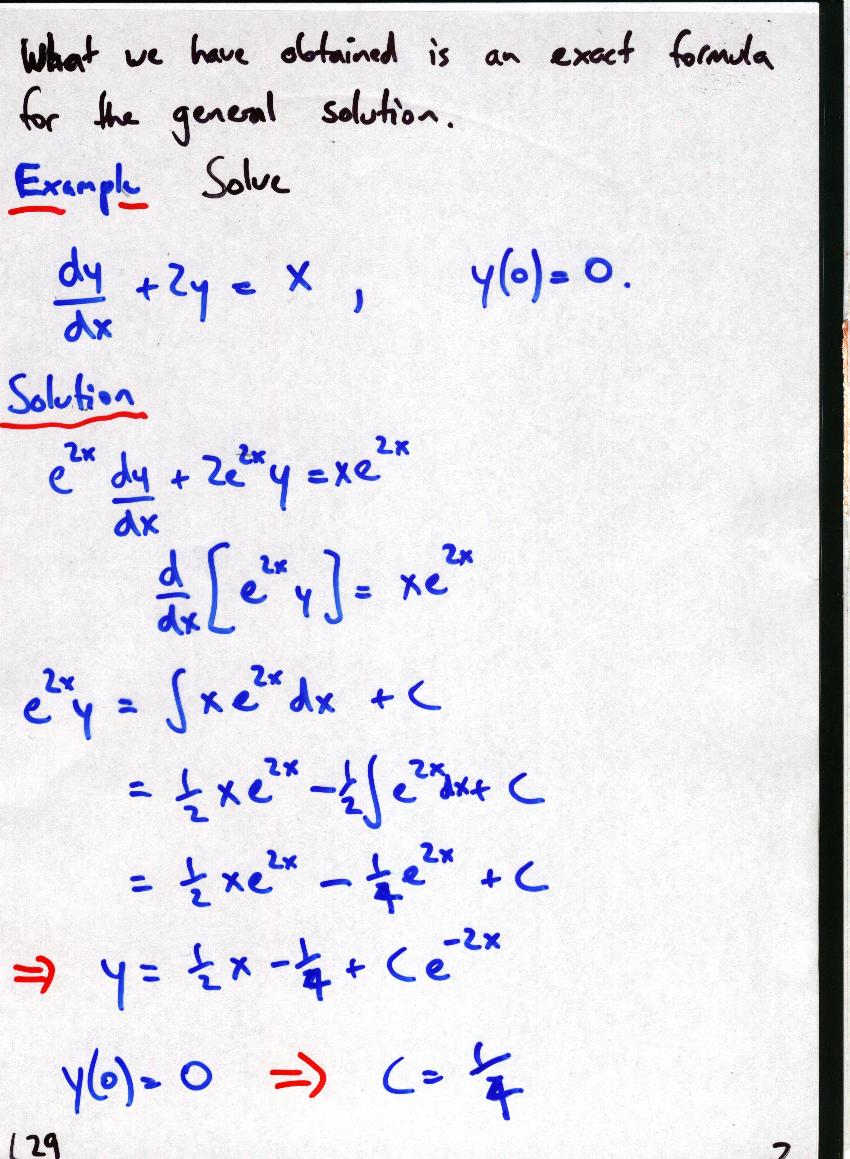 What we have obtained is an exact formula
for the general solution.
Example Solve
dy/dx + 2y = x , y(0) = 0.
Solution
e^{2x} dy/dx + 2e^{2x} y = xe^{2x}
d/dx [e^{2x} y] = xe^{2x}
e^{2x} y = ∫ x e^{2x} dx + C
= 1/2 xe^{2x} - 1/2 ∫ e^{2x} dx + C
= 1/2 xe^{2x} - 1/4 e^{2x} + C
⇒ y = 1/2 x - 1/4 + C e^{-2x}
y(0) = 0 ⇒ C = 1/4